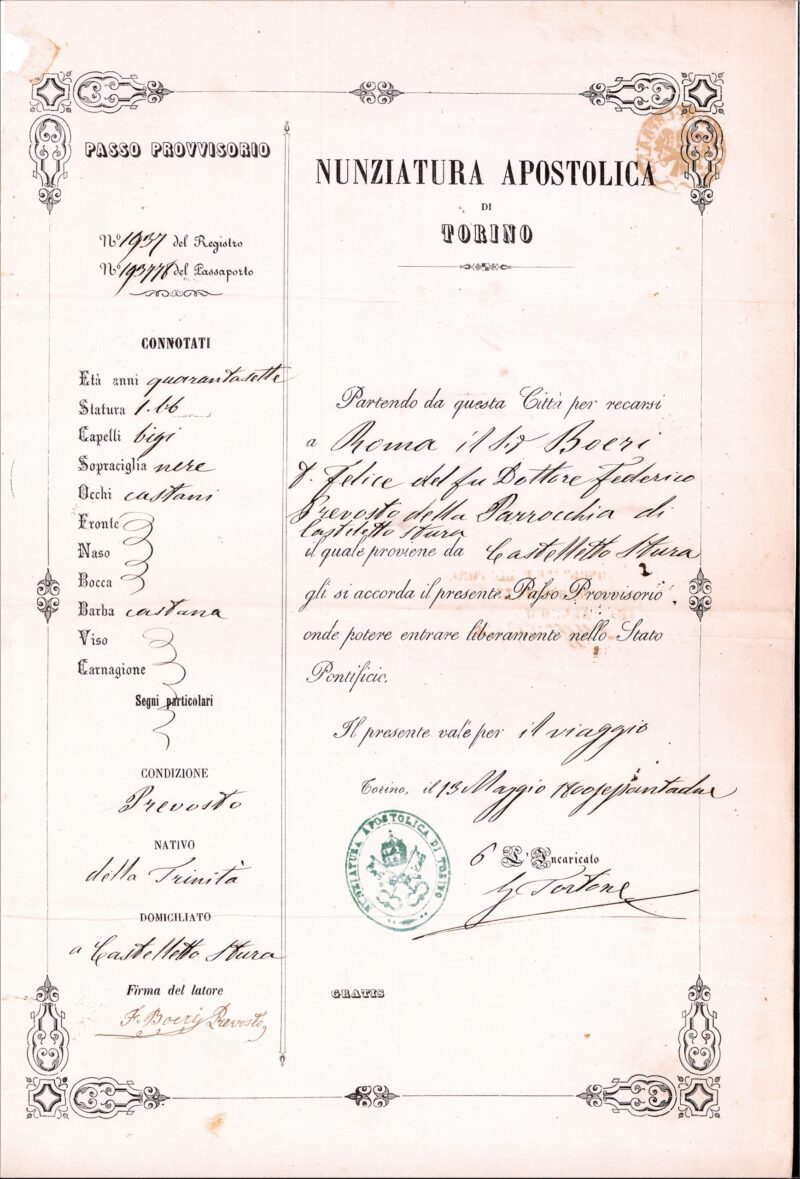 PASSO PROVVISORIO
Nº 1937 del Registro
Nº 193778 del Passaporto
CONNOTATI
Età anni quarantasette
Statura 1.66
Capelli bigi
Sopraciglia nere
Occhi castani
Fronte
Naso
Bocca
Barba castana
Viso
Carnagione
Segni particolari
CONDIZIONE
Prevosto
NATIVO
della Trinità
DOMICILIATO
a Castelletto Stura
Firma del latore
F. Boeri Prevosto
NUNZIATURA APOSTOLICA
DI
TORINO
Partendo da questa Città per recarsi
a Roma il Boeri
D. Felice del fu Dottore Federico
Prevosto della Parrocchia di
Castelletto Stura
il quale proviene da Castelletto Stura
gli si accorda il presente Passo Provvisorio
onde potere entrare liberamente nello Stato
Pontificio.
Il presente vale per il viaggio
Torino, il 13 Maggio
NUNZIATURA APOSTOLICA DI TORINO
L'Incaricato
Tortone
GRATIS